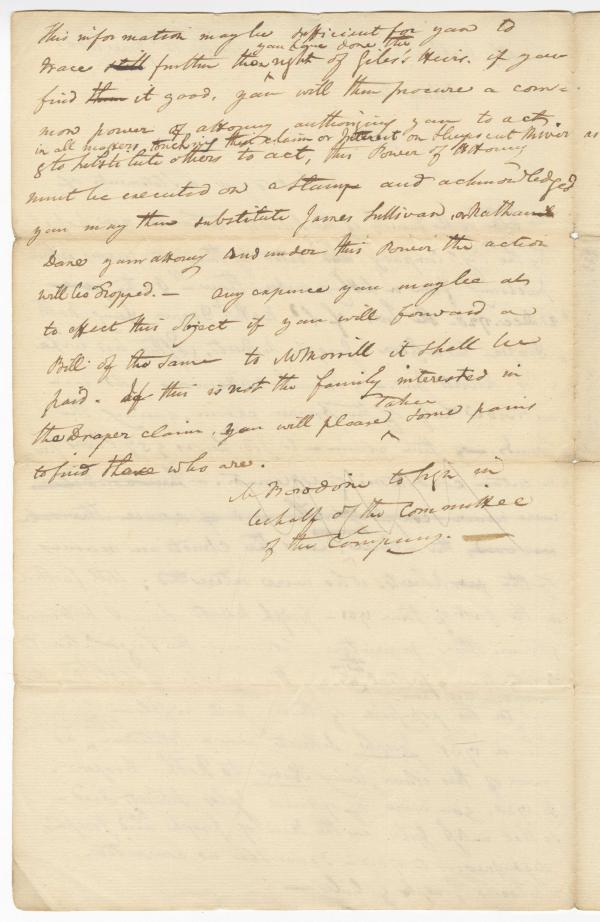 This information may be sufficient for you to
you have done the
trace still further then right of Giles's Heirs. if you
find them it good, you will then procure a com-
mon power of attorny authorizing you to act
in all matters touching their claim or Interest on Sheepscut River as
& to substitute others to act, this Power of Attorny
must be executed on a Stamp and acknowledged
you may then substitute James Sullivan, or Nathan
Dane your attorny and under this Power the action
will be stopped. — any expence you may be at
to effect this object if you will forward a
Bill of the same to Mr Morrill it shall be
paid. If this is not the family interested in
taken
the Draper claim, you will please some pains
to find those who are.
Mr Bowdoin to sign in
behalf of the Committee
of the Company. —